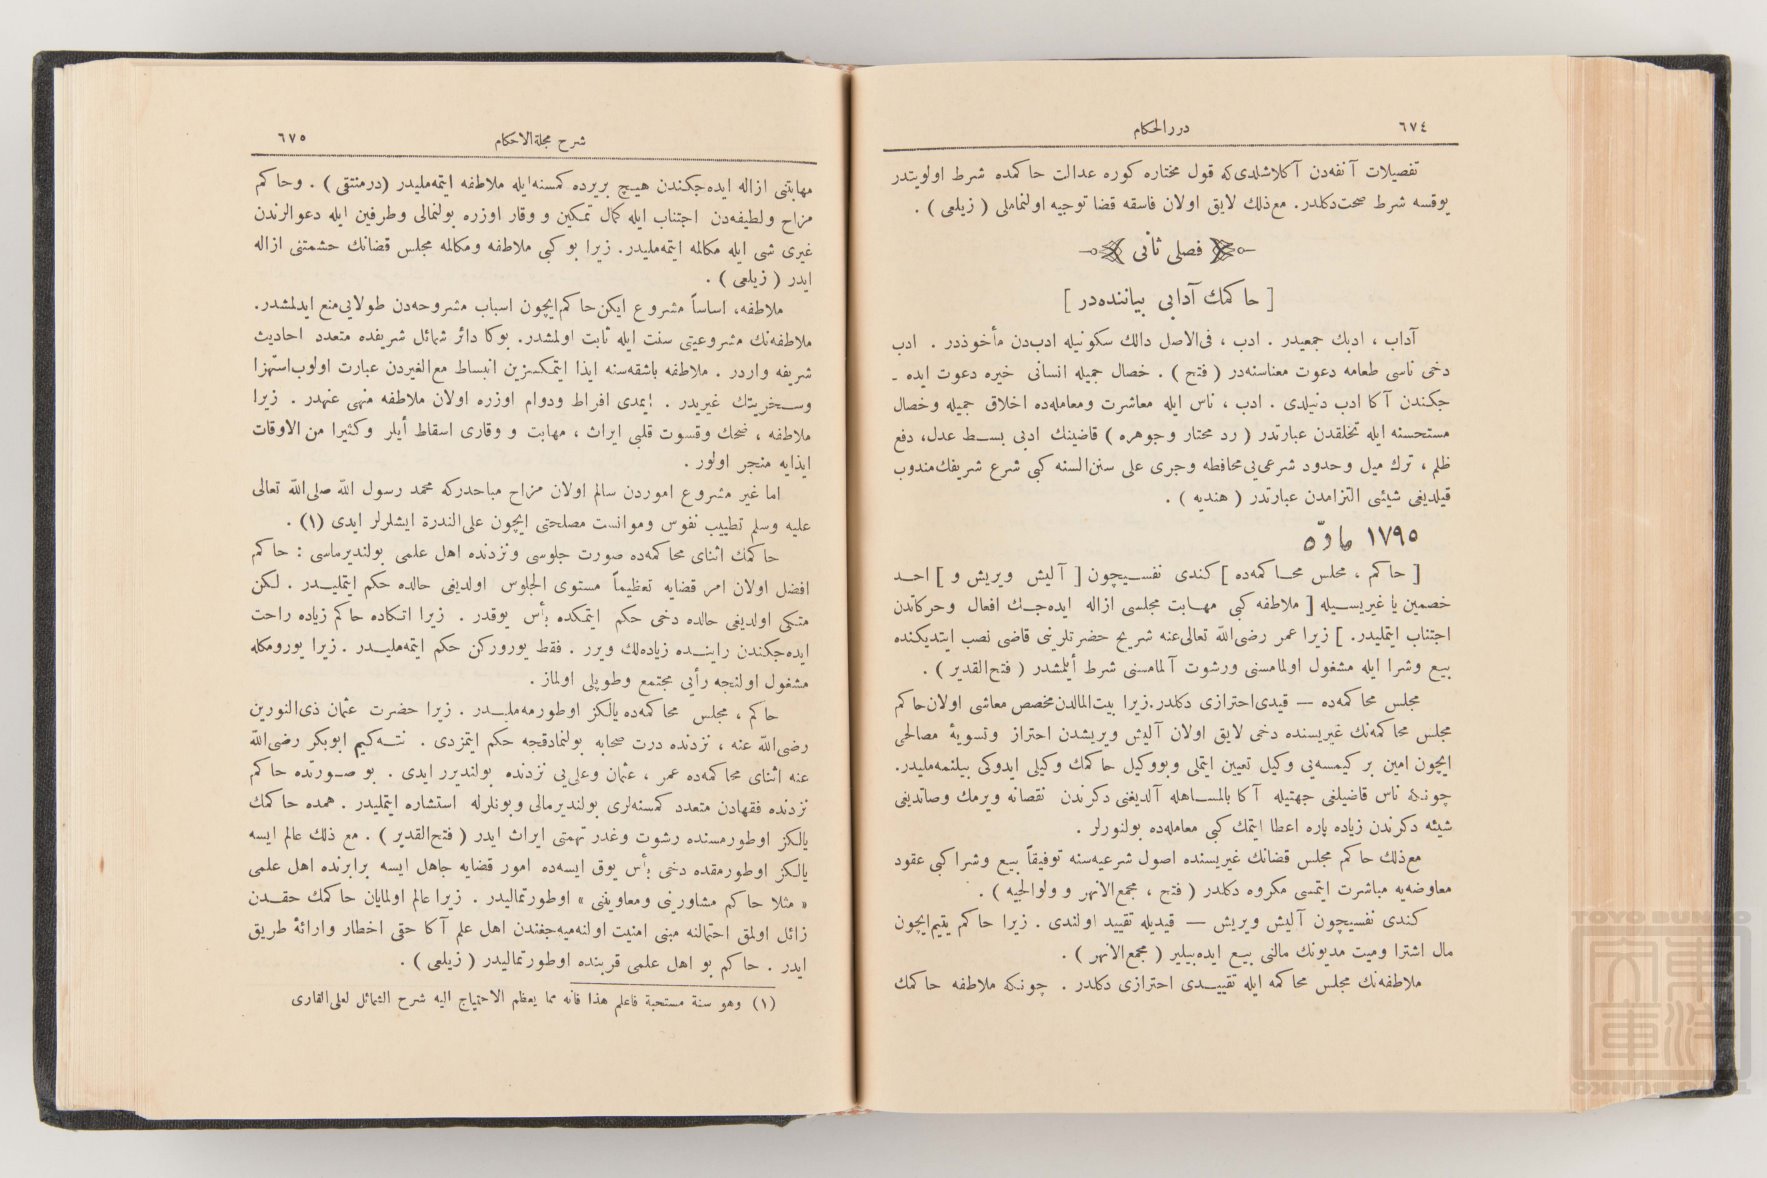 ٦٧٤
دررالحكام
تفصيلات آنفه‌دن آكلاشلدى‌كه قول مختاره كوره عدالت حاكمده شرط اولويتدر
يوقسه شرط صحت‌دكلدر. مع‌ذلك لايق اولان فاسقه قضا توجيه اولنماملى ( زيلعى ) .
فصل ثانى
[ حاكمك آدابى بياننده‌در ]
آداب ، ادبك جمعيدر . ادب ، فى‌الاصل دالك سكونيله ادب‌دن مأخوذدر . ادب
دخى ناسى طعامه دعوت معناسنه‌در ( فتح ) . خصال جميله انسانى خيره دعوت ايده ـ
جكندن آكا ادب دنيلدى . ادب ، ناس ايله معاشرت ومعامله‌ده اخلاق جميله وخصال
مستحسنه ايله تخلقدن عبارتدر ( رد محتار وجوهره ) قاضينك ادبى بسط عدل، دفع
ظلم ، ترك ميل وحدود شرعى‌يى‌محافظه وجرى على سنن‌السنه كبى شرع شريفك‌مندوب
قيلديغى شيئى التزامدن عبارتدر ( هنديه ) .
١٧٩٥ مادّه
[ حاكم ، مجلس محاكمه‌ده ] كندى نفسيچون [ آليش ويريش و ] احد
خصمين يا غيريسيله [ ملاطفه كبى مهابت مجلسى ازاله ايده‌جك افعال وحركاتدن
اجتناب ايتمليدر. ] زيرا عمر رضى‌الله تعالى‌عنه شريح حضرتلرينى قاضى نصب ايتديكنده
بيع وشرا ايله مشغول اولمامسنى ورشوت آلمامسنى شرط أيلمشدر ( فتح‌القدير ) .
مجلس محاكمه‌ده — قيدى‌احترازى دكلدر.زيرا بيت‌المالدن‌مخصص معاشى اولان‌حاكم
مجلس محاكمه‌نك غيريسنده دخى لايق اولان آليش ويريشدن احتراز وتسويۀ مصالحى
ايچون امين بر كيمسه‌يى وكيل تعيين ايتملى وبووكيل حاكمك وكيلى ايدوكى بيلنمه‌مليدر.
چونكه ناس قاضيلغى جهتيله آكا بالمساهله آلديغنى دكرندن نقصانه ويرمك وصاتديغى
شيئه دكرندن زياده پاره اعطا ايتمك كبى معامله‌ده بولنورلر .
مع‌ذلك حاكم مجلس قضانك غيريسنده اصول شرعيه‌سنه توفيقاً بيع وشراكبى عقود
معاوضه‌يه مباشرت ايتمسى مكروه دكلدر ( فتح ، مجمع‌الانهر و ولوالجيه ) .
كندى نفسيچون آليش ويريش — قيديله تقييد اولندى . زيرا حاكم يتيم‌ايچون
مال اشترا وميت مديونك مالنى بيع ايده‌بيلير ( مجمع‌الانهر ) .
ملاطفه‌نك مجلس محاكمه ايله تقييدى احترازى دكلدر . چونكه ملاطفه حاكمك
شرح مجلةالاحكام
٦٧٥
مهابتنى ازاله ايده‌جكندن هيچ بريرده كمسنه‌ايله ملاطفه ايتمه‌مليدر (درمنتقى ) . وحاكم
مزاح ولطيفه‌دن اجتناب ايله كمال تمكين و وقار اوزره بولنمالى وطرفين ايله دعوالرندن
غيرى شى ايله مكالمه ايتمه‌مليدر. زيرا بو كبى ملاطفه ومكالمه مجلس قضانك حشمتنى ازاله
ايدر ( زيلعى ) .
ملاطفه، اساساً مشروع ايكن‌حاكم‌ايچون اسباب مشروحه‌دن طولايى‌منع ايدلمشدر.
ملاطفه‌نك مشروعيتى سنت ايله ثابت اولمشدر. بوكا دائر شمائل شريفده متعدد احاديث
شريفه واردر . ملاطفه باشقه‌سنه ايذا ايتمكسزين انبساط مع‌الغيردن عبارت اولوب‌استهزا
وسخريتك غيريدر . ايمدى افراط ودوام اوزره اولان ملاطفه منهى عنهدر . زيرا
ملاطفه ، ضحك وقسوت قلبى ايراث ، مهابت و وقارى اسقاط أيلر وكثيرا من الاوقات
ايذايه منجر اولور .
اما غير مشروع اموردن سالم اولان مزاح مباحدركه محمد رسول الله صلى‌الله تعالى
عليه وسلم تطييب نفوس وموانست مصلحتى ايچون على‌الندرة ايشلرلر ايدى (١) .
حاكمك اثناى محاكمه‌ده صورت جلوسى ونزدنده اهل علمى بولنديرماسى : حاكم
افضل اولان امر قضايه تعظيماً مستوى الجلوس اولديغى حالده حكم ايتمليدر . لكن
متكى اولديغى حالده دخى حكم ايتمكده بأس يوقدر . زيرا اتكاده حاكم زياده راحت
ايده‌جكندن راينده زياده‌لك ويرر . فقط يوروركن حكم ايتمه‌مليدر . زيرا يورومكله
مشغول اولنجه رأيى مجتمع وطوپلى اولماز .
حاكم ، مجلس محاكمه‌ده يالكز اوطورمه‌مليدر . زيرا حضرت عثمان ذى‌النورين
رضى‌الله عنه ، نزدنده درت صحابه بولنمادقجه حكم ايتمزدى . نته‌كيم ابوبكر رضى‌الله
عنه اثناى محاكمه‌ده عمر ، عثمان وعلى‌يى نزدنده بولنديرر ايدى . بو صورتده حاكم
نزدنده فقهادن متعدد كمسنه‌لرى بولنديرمالى وبونلرله استشاره ايتمليدر . همده حاكمك
يالكز اوطورمسنده رشوت وغدر تهمتى ايراث ايدر ( فتح‌القدير ) . مع ذلك عالم ايسه
يالكز اوطورمقده دخى بأس يوق ايسه‌ده امور قضايه جاهل ايسه برابرنده اهل علمى
« مثلا حاكم مشاورينى ومعاوينى » اوطورتماليدر . زيرا عالم اولمايان حاكمك حقدن
زائل اولمق احتمالنه مبنى امنيت اولنه‌ميه‌جغندن اهل علم آكا حقى اخطار وارائۀ طريق
ايدر . حاكم بو اهل علمى قربنده اوطورتماليدر ( زيلعى ) .
(١) وهو سنة مستحبة فاعلم هذا فانه مما يعظم الاحتياج اليه شرح الشمائل لعلى‌القارى
TOYO BUNKO
東洋文庫
TOYO BUNKO